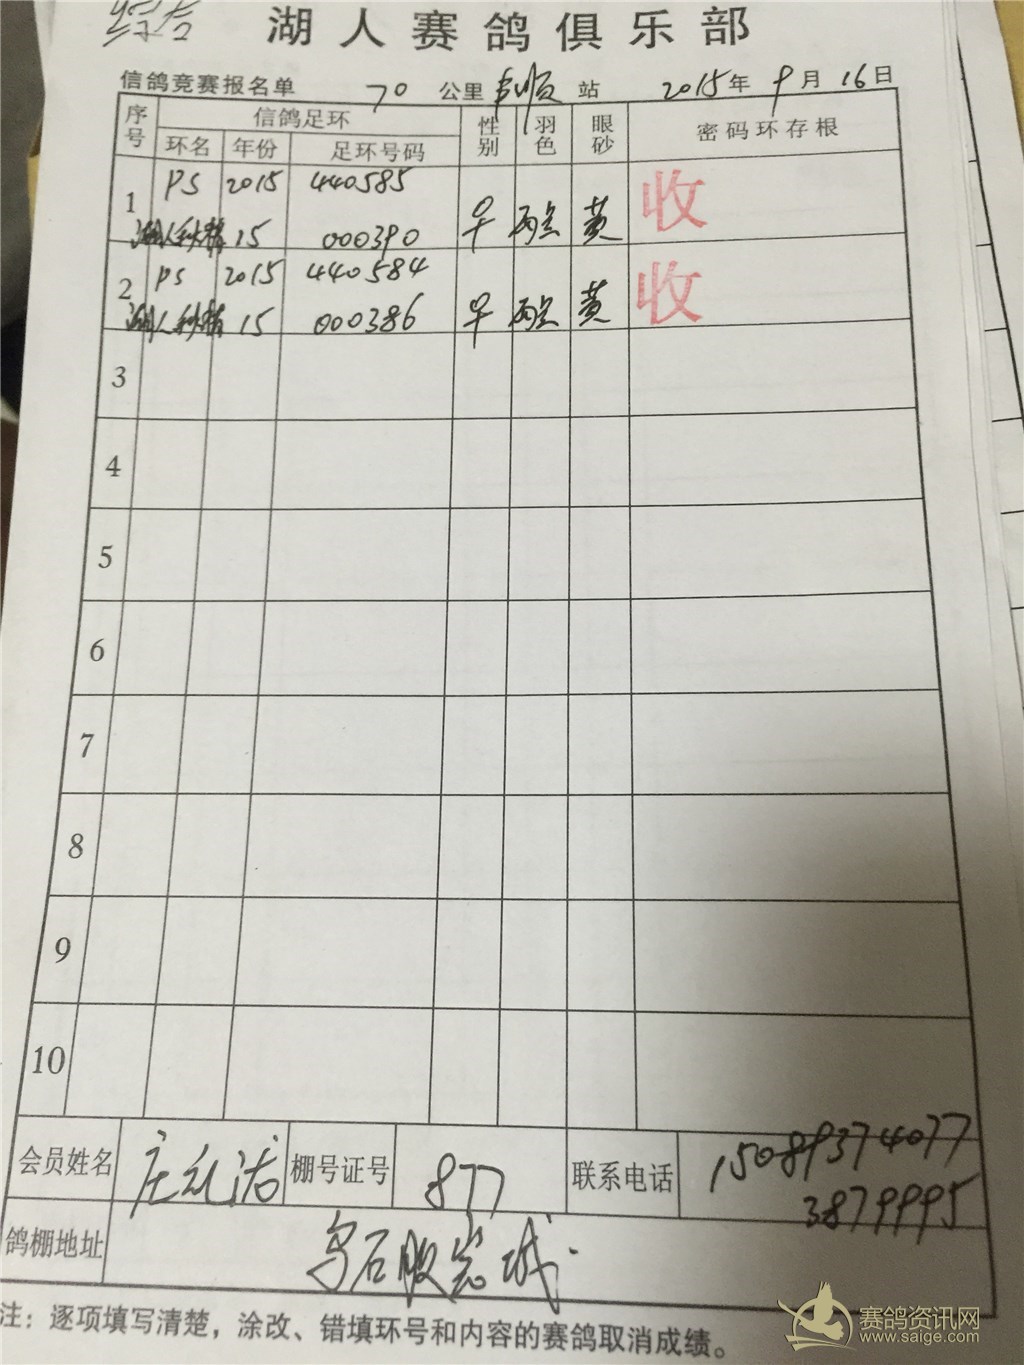 综合
湖人赛鸽俱乐部
信鸽竞赛报名单 70 公里 站 2015年 9月 16日
序号 信鸽足环 性别 羽色 眼砂 密码环存根
环名 年份 足环号码
1 PS 2015 440585
湖人秋棚 15 000390 早 雨白 黄 收
2 PS 2015 440584
湖人秋棚 15 000386 早 雨白 黄 收
3
4
5
6
7
8
9
10
会员姓名 庄 棚号证号 877 联系电话 15089374077
3879995
鸽棚地址 乌石服装城
注：逐项填写清楚，涂改、错填环号和内容的赛鸽取消成绩。
赛鸽资讯网
www.saige.com